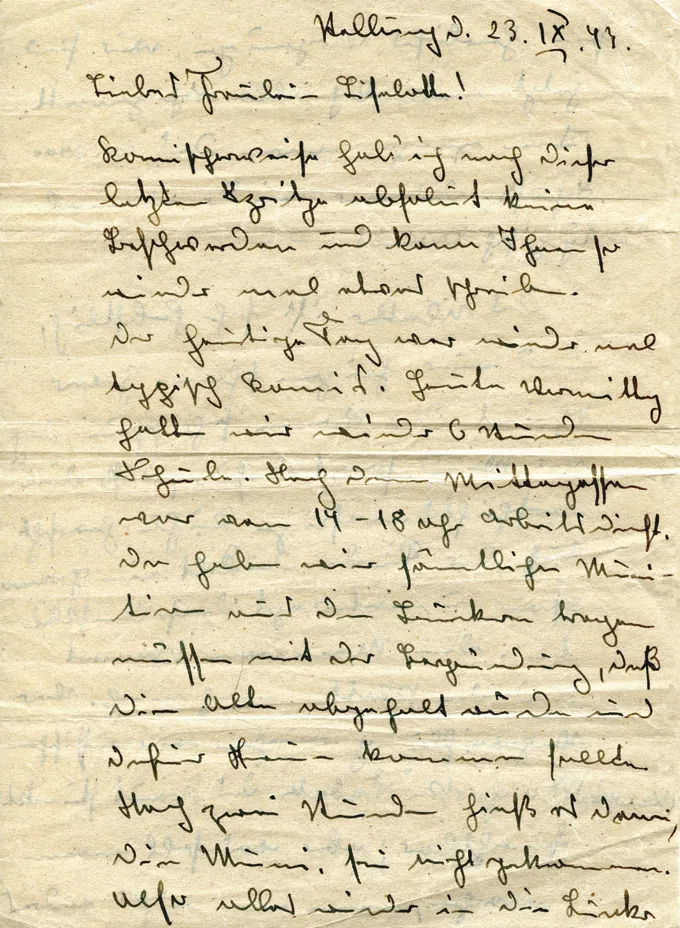 Stellung d. 23. IX. 43.
Liebes Fräulein Liselotte!
Komischerweise hab' ich nach dieser
letzten Spritze absolut keine
Beschwerden und kann Ihnen so
wieder mal etwas schreiben.
Der heutige Tag war wieder mal
typisch Komis. Heute Vormittg
hatten wir wieder 6 Stunden
Schule. Nach dem Mittagessen
war von 14-18 Uhr Arbeitsdienst.
Da haben wir sämtliche Muni-
tion aus den Bunkern tragen
müssen mit der Begründung, daß
die Alte abgeholt würde und
dafür Neue kommen sollte.
Nach zwei Stunden hieß es dann,
die Muni. sei nicht gekommen.
Also alles wieder in die Bunker